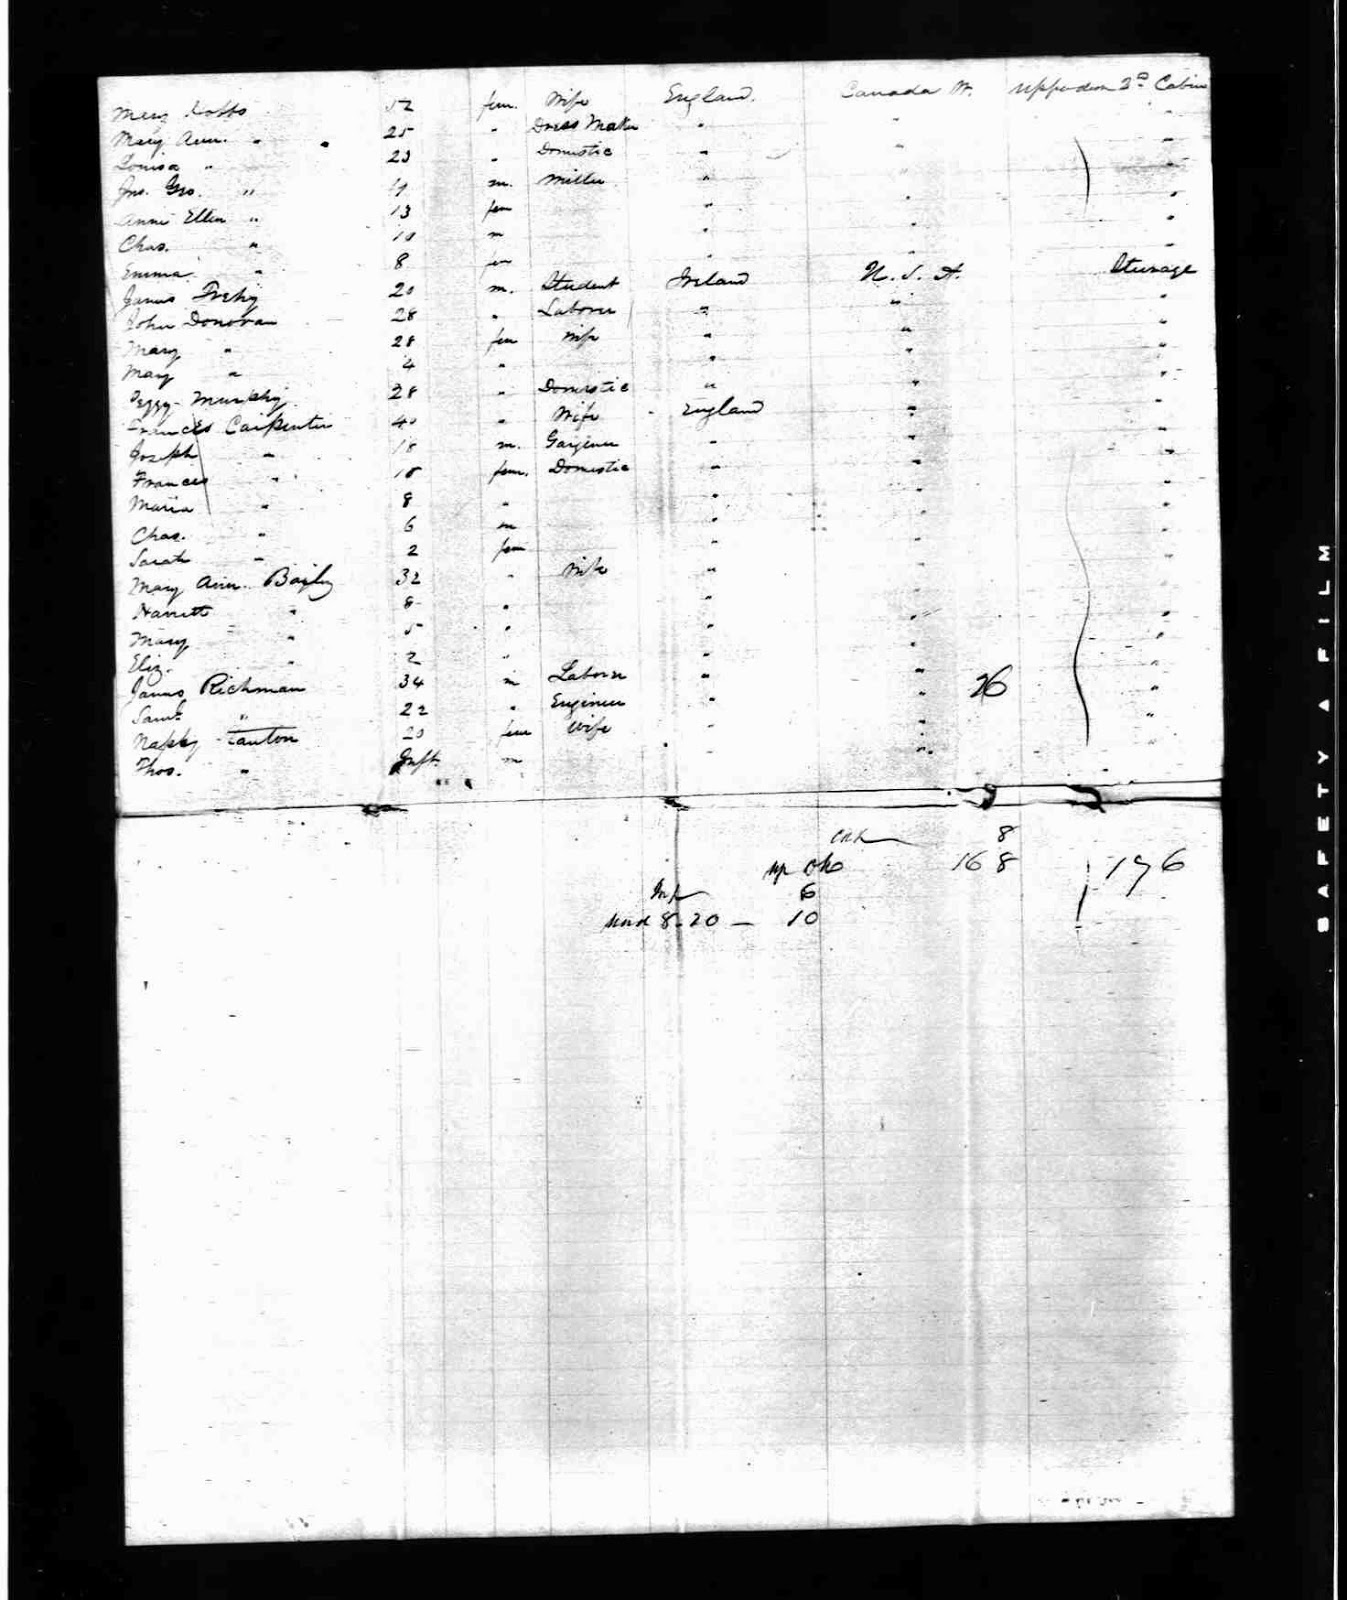 Mary 52 fem. Wife England. Canada W. 2nd Cabin
Mary Ann. " 25 " Dress Maker " " "
Louisa " 23 " Domestic " " "
Jno. Geo. " m. Miller " " "
Annie Ellen " 13 fem " " "
Chas. " 10 m " " "
Emma " 8 fem " " "
James 20 m. Student Ireland U. S. A. Steerage
John Donovan 28 " Laborer " " "
Mary " 28 fem Wife " " "
Mary " 4 " " " "
Peggy Murphy 28 " Domestic " " "
Frances Carpenter 40 " Wife England " "
Joseph " 18 m. " " "
Frances " fem. Domestic " " "
Maria " 8 " " " "
Chas. " 6 m " " "
Sarah " 2 fem " " "
Mary Ann 32 " Wife " " "
Harriett " 8 " " " "
Mary " 5 " " " "
Eliz. " 2 " " " "
James Richman 34 m Laborer " " "
Saml " 22 " Engineer " " 26 "
20 fem Wife " " "
Thos. " Inft. m " "
8
168 176
Inf 6
8.20 — 10
SAFETY A FILM